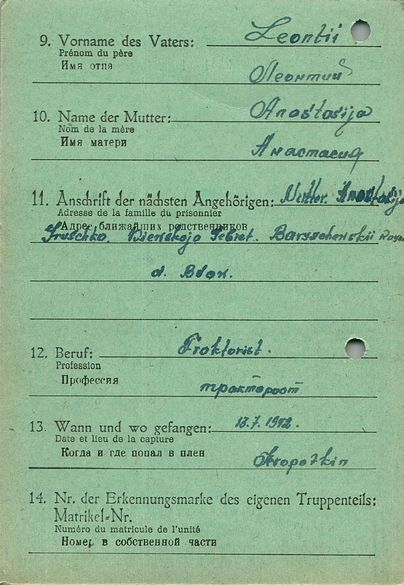 9. Vorname des Vaters: Leontii
Prénom du père
Имя отца
Леонтий
10. Name der Mutter: Anastasija
Nom de la mère
Имя матери
Анастасия
11. Anschrift der nächsten Angehörigen: Mutter. Anastasija
Adresse de la famille du prisonnier
Адрес ближайших родственников
Gebiet.
d.
12. Beruf: Troktorist.
Profession
Профессия
13. Wann und wo gefangen: 13.7.1942.
Date et lieu de la capture
Когда и где попал в плен
Kropotkin
14. Nr. der Erkennungsmarke des eigenen Truppenteils:
Matrikel-Nr.
Numéro du matricule de l'unité
Номер в собственной части